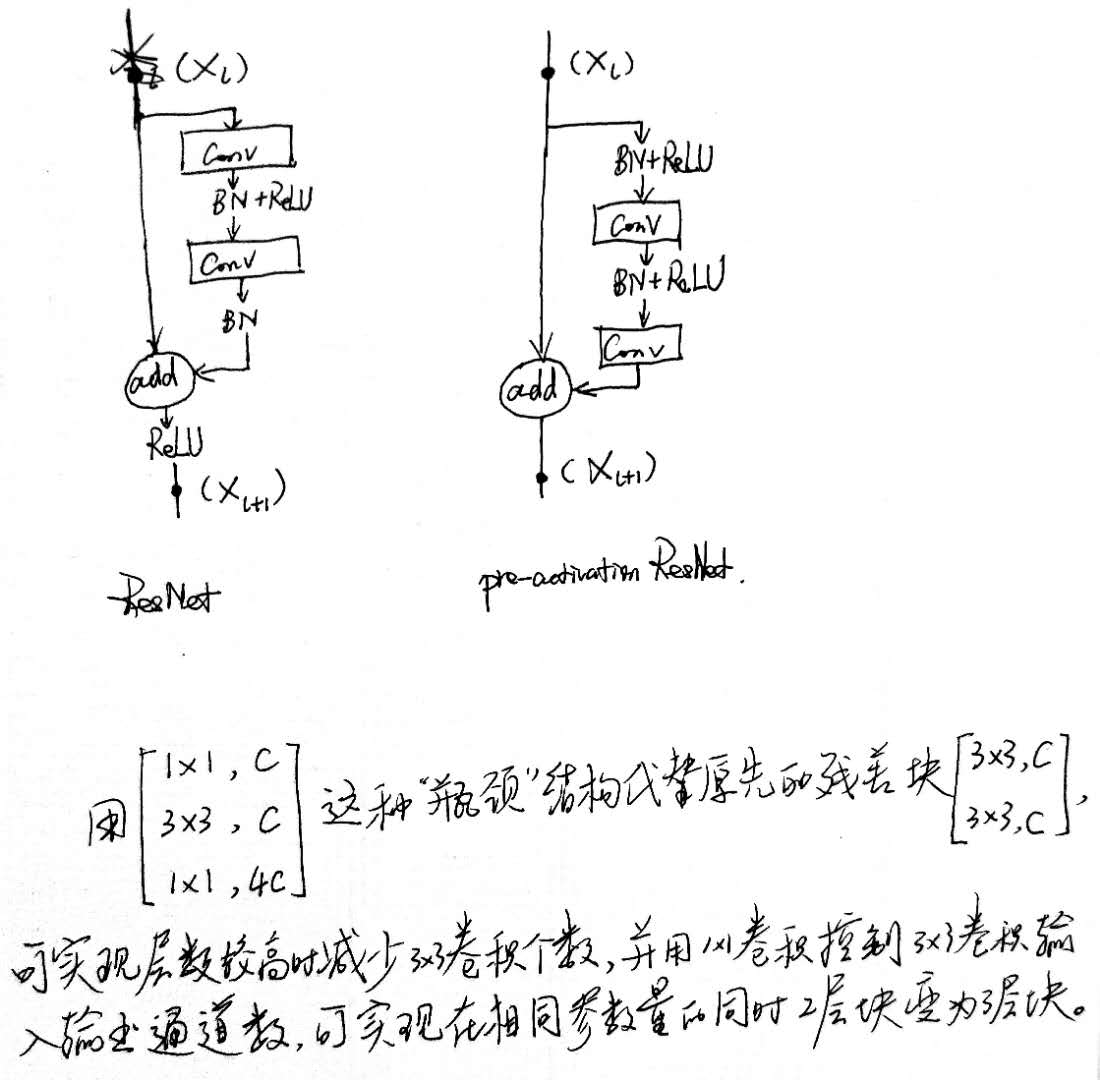 (X_l)
Conv
BN+ReLU
Conv
BN
add
ReLU
(X_{l+1})
ResNet
(X_l)
BN+ReLU
Conv
BN+ReLU
Conv
add
(X_{l+1})
pre-activation ResNet.
用[1×1, C
3×3, C
1×1, 4C]这种“瓶颈”结构代替原先的残差块[3×3, C
3×3, C],
可实现层数较高时减少3×3卷积个数,并用1×1卷积控制3×3卷积输
入输出通道数,可实现在相同参数量的同时2层块变为3层块。